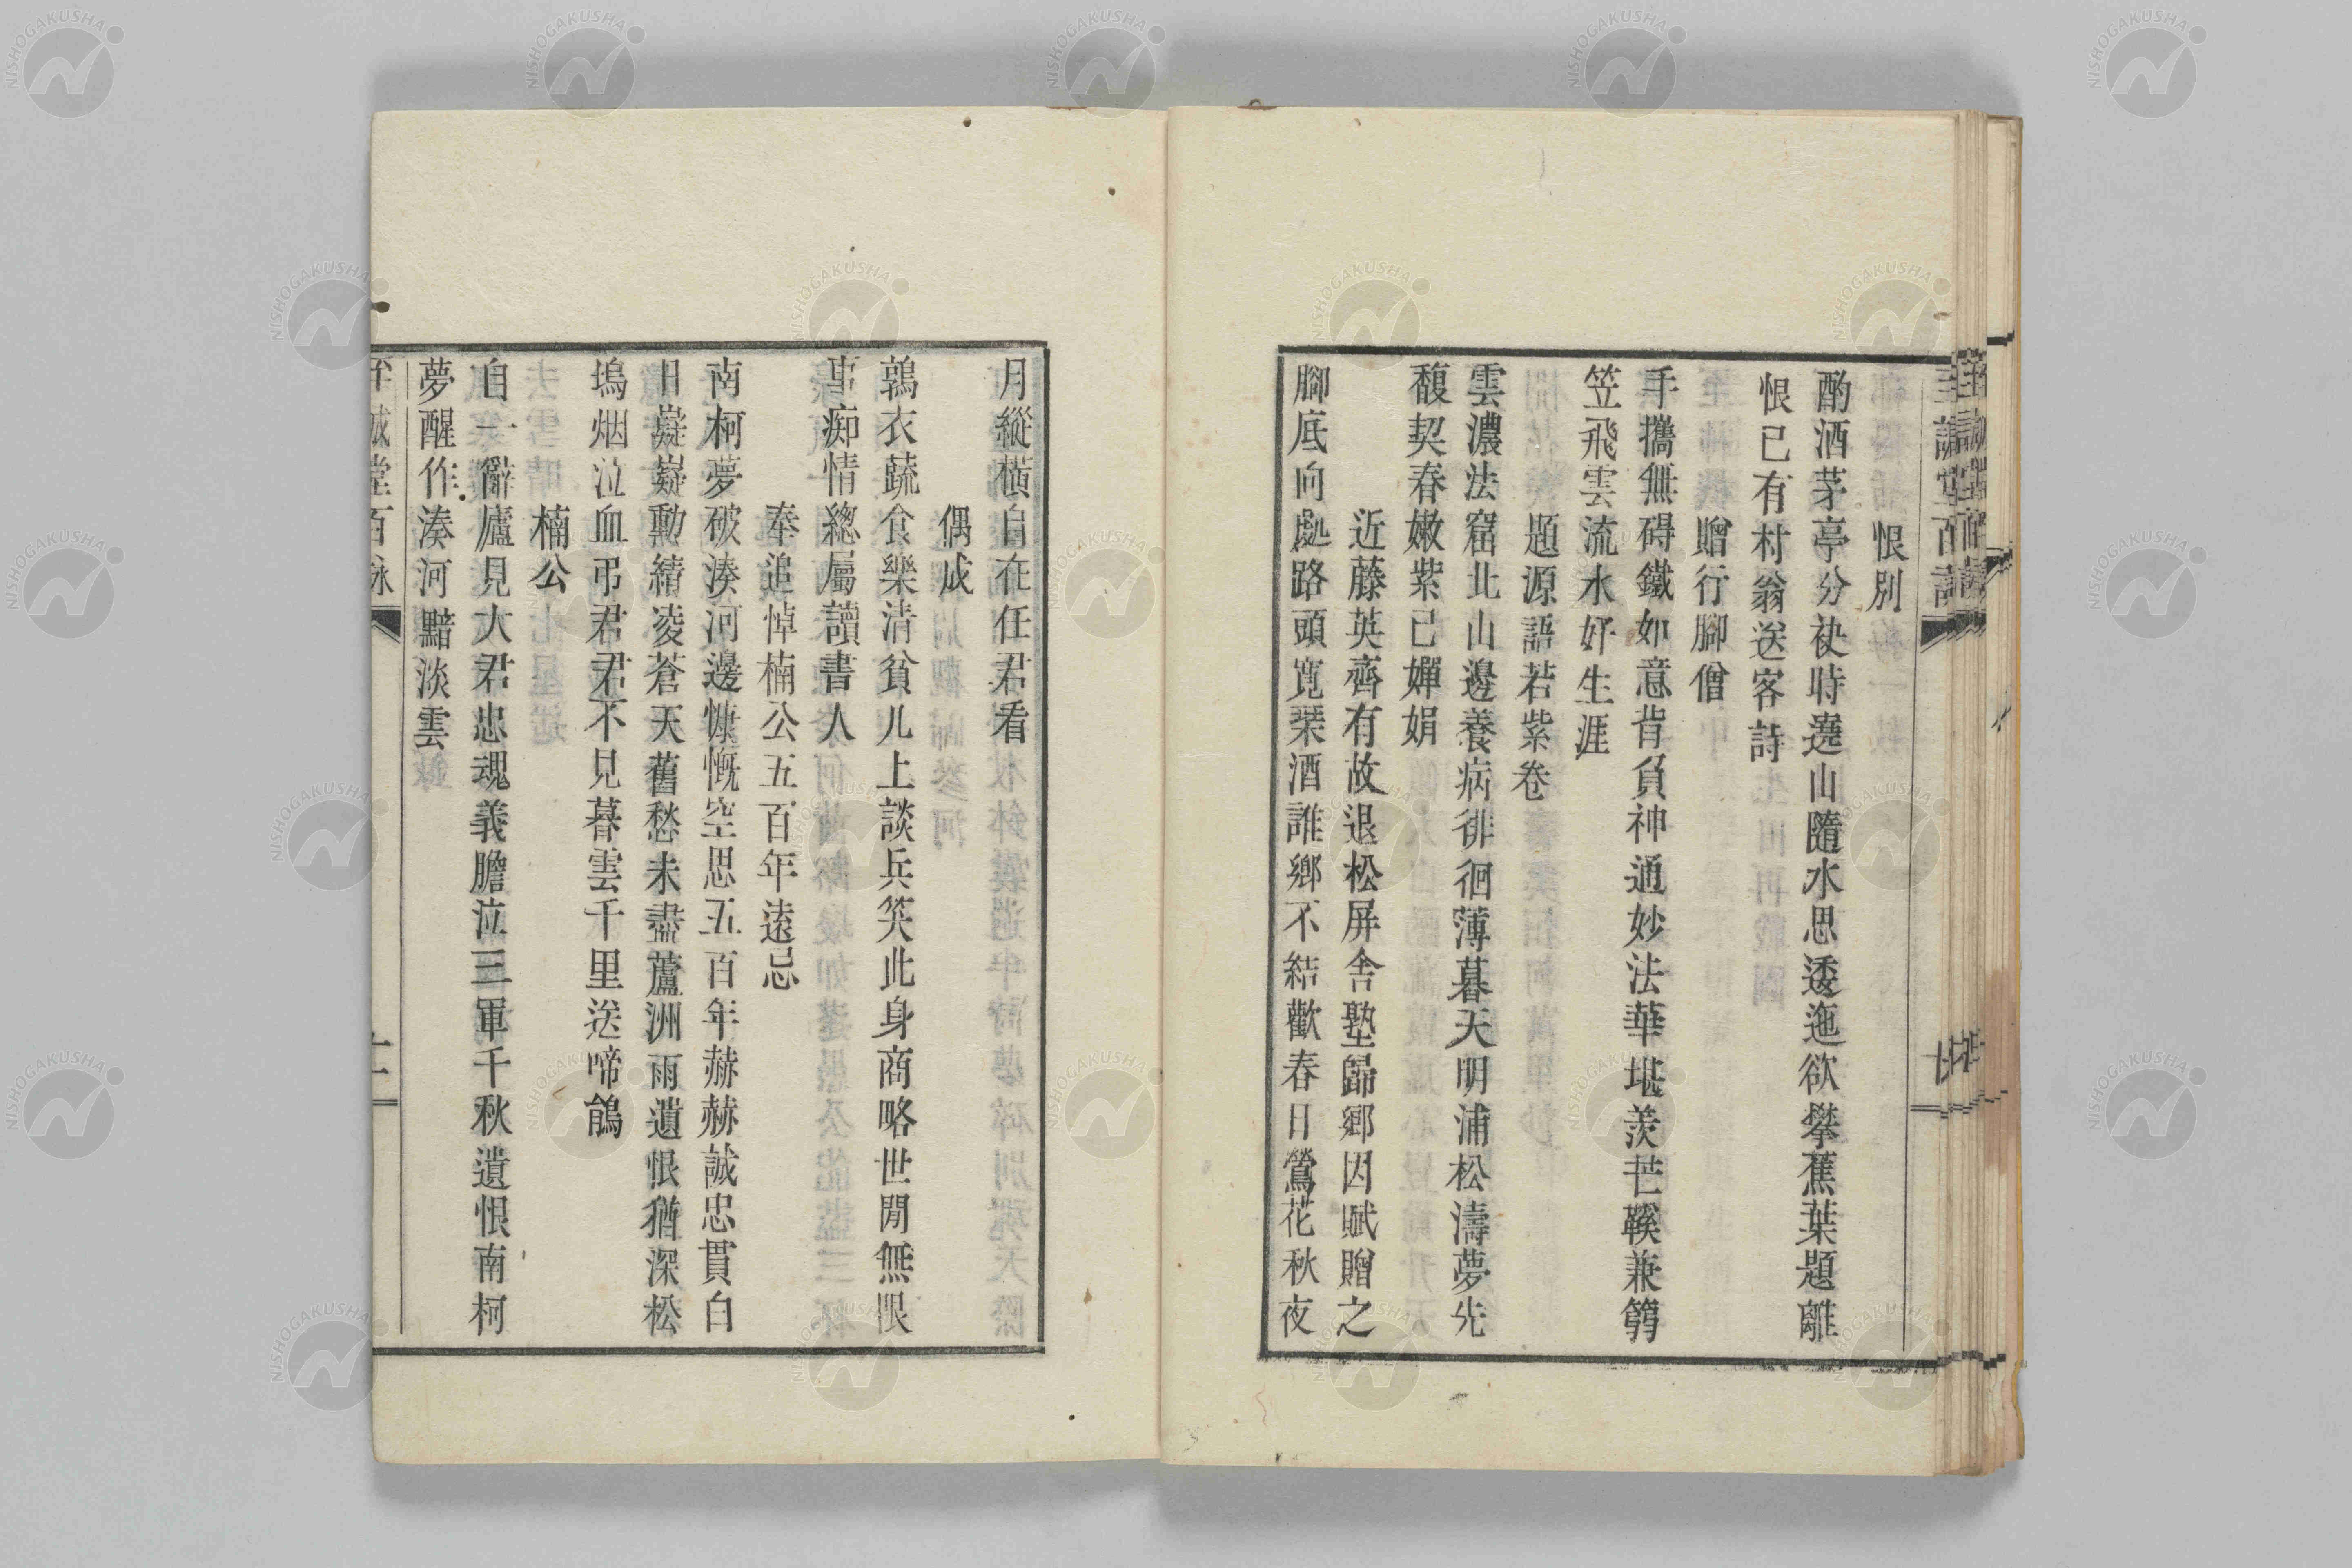 恨別
酌酒茅亭分袂時遶山隨水思逶迤欲攀蕉葉題離
恨已有村翁送客詩
贈行腳僧
手攜無碍鐵如意背負神通妙法華堪羨芒鞵兼篛
笠飛雲流水好生涯
題源語若紫卷
雲濃法窟北山邊養病徘徊薄暮天明浦松濤夢先
馥契春嫩紫已嬋娟
近藤英齊有故退松屏舍塾歸鄉因賦贈之
腳底向處路頭寬琹酒誰鄉不結歡春日鶯花秋夜
月縱橫自在任君看
偶成
鶉衣蔬食樂清貧几上談兵笑此身商略世閒無限
事痴情總屬讀書人
奉追悼楠公五百年遠忌
南柯夢破湊河邊慷慨空思五百年赫赫誠忠貫白
日嶷嶷勳績凌蒼天舊愁未盡蘆洲雨遺恨猶深松
塢烟泣血弔君君不見暮雲千里送啼鵑
楠公
自一辭廬見大君忠魂義膽泣三軍千秋遺恨南柯
夢醒作湊河黯淡雲
至誠堂百詠
十一
NISHOGAKUSHA